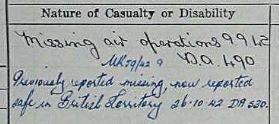 Nature of Casualty or Disability
Missing air operations 9 9 42
DA 490
Previously reported missing, now reported
safe in British Territory 26·10·42 DA 530.